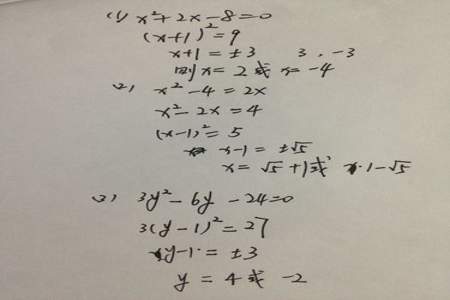 (1) x²+2x-8=0
(x+1)²=9
x+1=±3 3,-3
则x=2或x=-4
(2) x²-4=2x
x²-2x=4
(x-1)²=5
x-1=±√5
x=√5+1或 1-√5
(3) 3y²-6y-24=0
3(y-1)²=27
y-1=±3
y=4或-2